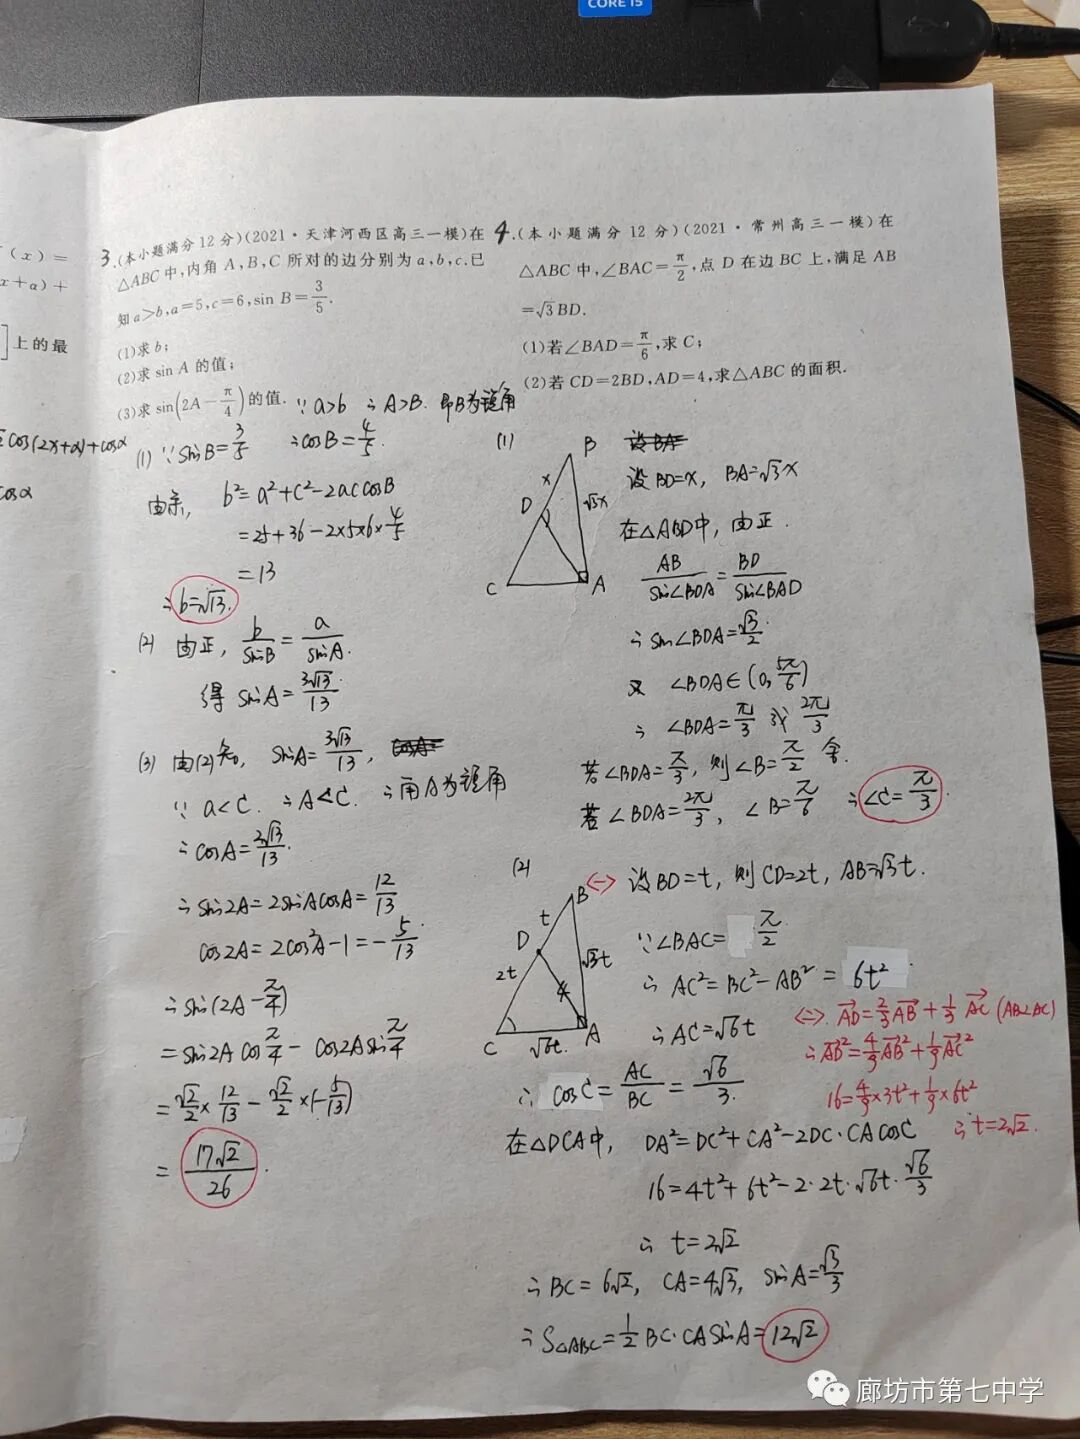 CORE i5
(x)=
x+α)+
]上的最
cos(2x+α)+cosα
cosα
3.(本小题满分12分)(2021·天津河西区高三一模)在
△ABC中,内角A,B,C所对的边分别为a,b,c.已
知a>b,a=5,c=6,sin B=3/5.
(1)求b;
(2)求sin A的值;
(3)求sin(2A-π/4)的值.
∵a>b ∴A>B. 即B为锐角
(1) ∵sinB=3/5 ∴cosB=4/5.
由余, b²=a²+c²-2accosB
=25+36-2×5×6×4/5
=13
∴b=√13.
(2) 由正, b/sinB=a/sinA.
得 sinA=3√13/13
(3) 由(2)知, sinA=3√13/13, cosA=
∵a<c. ∴A<C. ∴角A为锐角
∴cosA=2√13/13.
∴sin2A=2sinAcosA=12/13
cos2A=2cos²A-1=-5/13
∴sin(2A-π/4)
=sin2Acosπ/4-cos2Asinπ/4
=√2/2×12/13-√2/2×(-5/13)
=17√2/26.
4.(本小题满分12分)(2021·常州高三一模)在
△ABC中,∠BAC=π/2,点D在边BC上,满足AB
=√3BD.
(1)若∠BAD=π/6,求C;
(2)若CD=2BD,AD=4,求△ABC的面积.
(1)
B
x
D
√3x
C
A
设BA=
设BD=x, BA=√3x
在△ABD中, 由正.
AB/sin∠BDA=BD/sin∠BAD
∴sin∠BDA=√3/2
又 ∠BDA∈(0,5π/6)
∴ ∠BDA=π/3 或 2π/3
若∠BDA=π/3, 则∠B=π/2 舍.
若∠BDA=2π/3, ∠B=π/6 ∴∠C=π/3.
(2)
B
t
D
√3t
2t
4
C
√6t.
A
<一> 设BD=t, 则CD=2t, AB=√3t.
∵∠BAC=π/2
∴AC²=BC²-AB²=6t²
∴AC=√6t
∴cosC=AC/BC=√6/3.
在△DCA中, DA²=DC²+CA²-2DC·CAcosC
16=4t²+6t²-2·2t·√6t·√6/3
∴ t=2√2
∴BC=6√2, CA=4√3, sinA=√3/3
∴S△ABC=1/2BC·CAsinA=12√2
<二>. AD=2/3AB+1/3AC (AB⊥AC)
∴AD²=4/9AB²+1/9AC²
16=4/9×3t²+1/9×6t²
∴t=2√2.
廊坊市第七中学